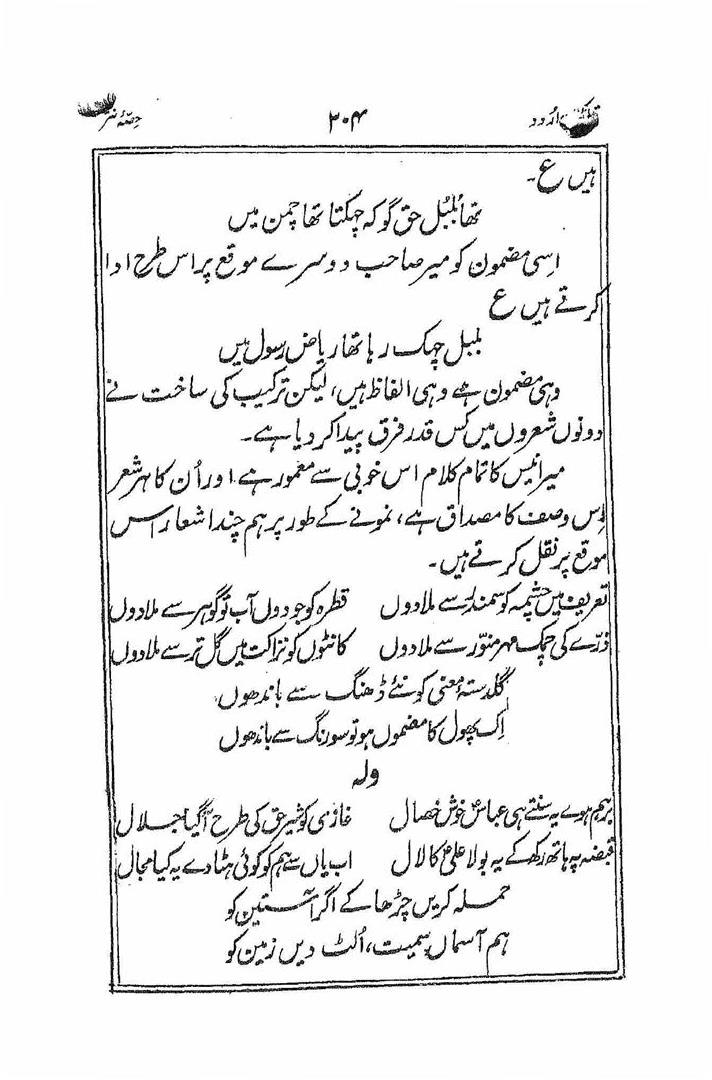 اُردو
۲۰۴
حصّۂ نثر
ہیں ع۔
تھا بُلبُل حق گو کہ چہکتا تھا چمن میں
اسی مضمون کو میر صاحب دوسرے موقع پر اس طرح ادا
کرتے ہیں ع
بلبل چہک رہا تھا ریاض رسول میں
وہی مضمون ہے وہی الفاظ ہیں، لیکن ترکیب کی ساخت نے
دونوں شعروں میں کس قدر فرق پیدا کر دیا ہے۔
میر انیس کا تمام کلام اس خوبی سے معمور ہے اور اُن کا ہر شعر
اِس وصف کا مصداق ہے، نمونے کے طور پر ہم چند اشعار اس
موقع پر نقل کرتے ہیں۔
تعریف میں چشمہ کو سمندر سے ملا دوں قطرہ کو جو دوں آب تو گوہر سے ملا دوں
ذرّے کی چمک مہر منوّر سے ملا دوں کانٹوں کو نزاکت میں گل تر سے ملا دوں
گلدستۂ معنی کو نئے ڈھنگ سے باندھوں
اِک پھول کا مضموں ہو تو سو رنگ سے باندھوں
ولہ
برہم ہوے یہ سنتے ہی عباسؑ خوش خصال غازی کو شیر حق کی طرح آگیا جلال
قبضہ پہ ہاتھ رکھ کے یہ بولا علیؑ کا لال اب یاں سے ہم کو کوئی ہٹا دے یہ کیا مجال
حملہ کریں چڑھا کے اگر آستین کو
ہم آسماں سمیت، اُلٹ دیں زمین کو